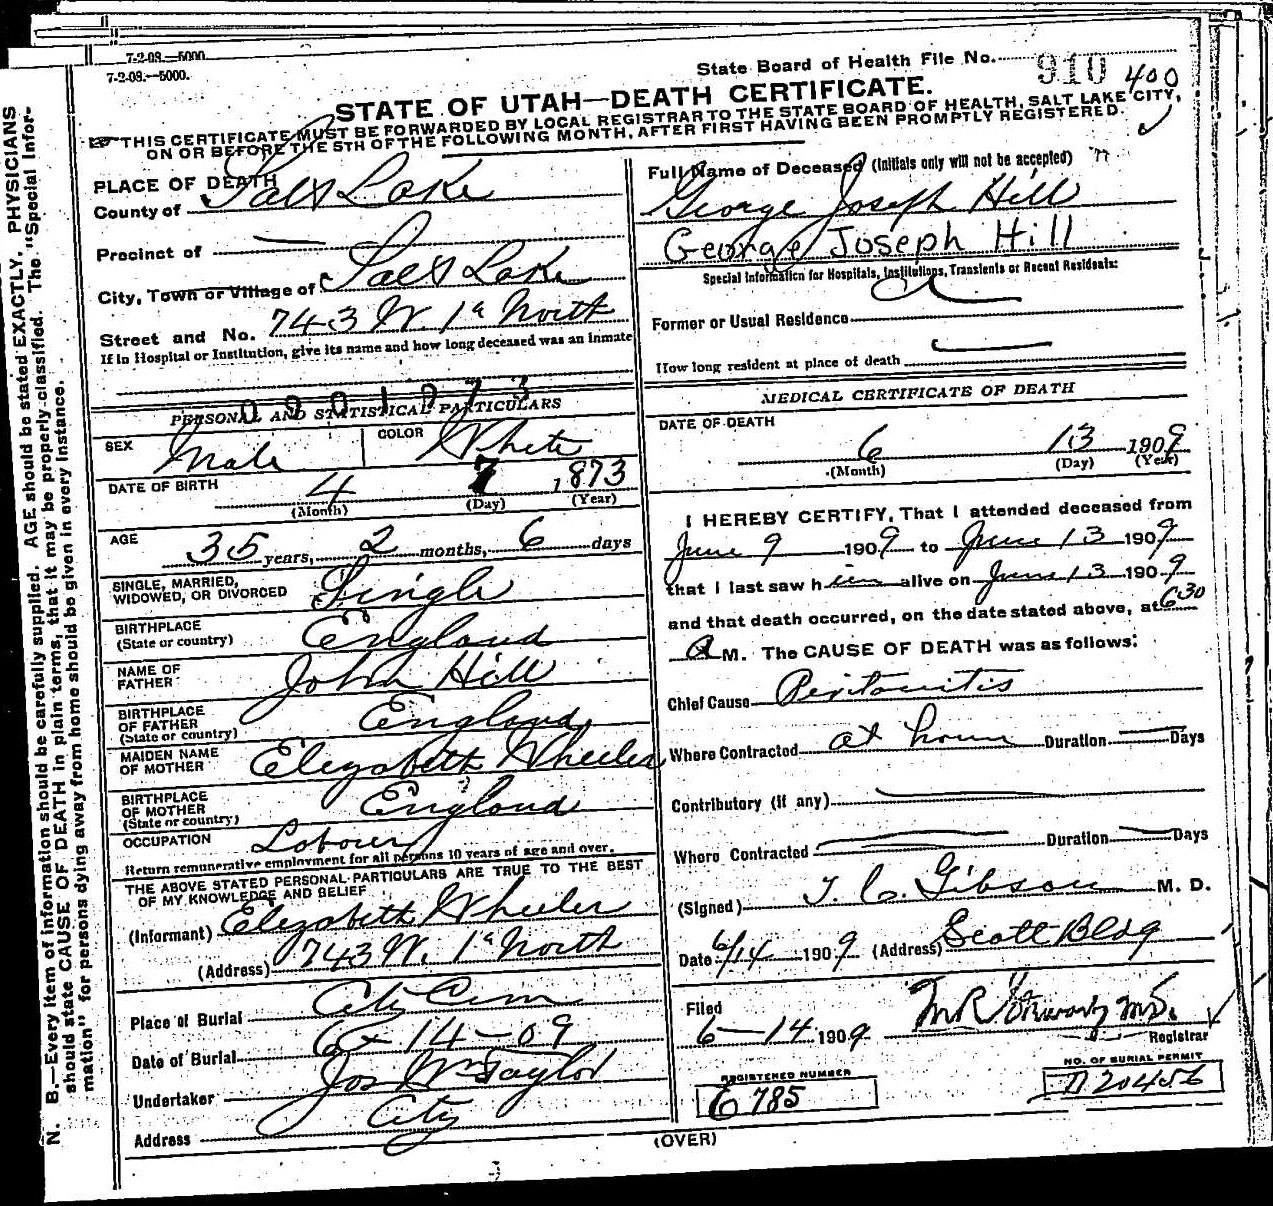 7-2-08.—5000.
7-2-08.—5000.
State Board of Health File No. 910 400
STATE OF UTAH—DEATH CERTIFICATE.
THIS CERTIFICATE MUST BE FORWARDED BY LOCAL REGISTRAR TO THE STATE BOARD OF HEALTH, SALT LAKE CITY,
ON OR BEFORE THE 5TH OF THE FOLLOWING MONTH, AFTER FIRST HAVING BEEN PROMPTLY REGISTERED.
PLACE OF DEATH
County of Salt Lake
Precinct of —
City, Town or Village of Salt Lake
Street and No. 743 W. 1st North
If in Hospital or Institution, give its name and how long deceased was an inmate
PERSONAL AND STATISTICAL PARTICULARS
SEX Male COLOR White
DATE OF BIRTH 4 7 1873
(Month) (Day) (Year)
AGE 35 years, 2 months, 6 days
SINGLE, MARRIED,
WIDOWED, OR DIVORCED Single
BIRTHPLACE
(State or country) England
NAME OF
FATHER John Hill
BIRTHPLACE
OF FATHER
(State or country) England
MAIDEN NAME
OF MOTHER Elezabeth Wheeler
BIRTHPLACE
OF MOTHER
(State or country) England
OCCUPATION Labour
Return remunerative employment for all persons 10 years of age and over.
THE ABOVE STATED PERSONAL PARTICULARS ARE TRUE TO THE BEST
OF MY KNOWLEDGE AND BELIEF
(Informant) Elezabeth Wheeler
(Address) 743 W. 1st North
Place of Burial City Cem
Date of Burial 6-14-09
Undertaker Jos Wm Taylor
Address City
Full Name of Deceased (Initials only will not be accepted)
George Joseph Hill
George Joseph Hill
Special Information for Hospitals, Institutions, Transients or Recent Residents:
Former or Usual Residence
How long resident at place of death
MEDICAL CERTIFICATE OF DEATH
DATE OF DEATH
6 13 1909
(Month) (Day) (Year)
I HEREBY CERTIFY, That I attended deceased from
June 9 1909 to June 13 1909
that I last saw him alive on June 13 1909
and that death occurred, on the date stated above, at 6 30
A M. The CAUSE OF DEATH was as follows:
Chief Cause Peritonitis
Where Contracted at home Duration — Days
Contributory (if any)
Where Contracted Duration — Days
(Signed) T. C. Gibson M. D.
Date 6/14 1909 (Address) Scott Bldg
Filed
6-14 1909
Registrar
REGISTERED NUMBER
E 785
NO. OF BURIAL PERMIT
D20456
(OVER)
N. B.—Every item of information should be carefully supplied. AGE should be stated EXACTLY. PHYSICIANS
should state CAUSE OF DEATH in plain terms, that it may be properly classified. The "Special Infor-
mation" for persons dying away from home should be given in every instance.